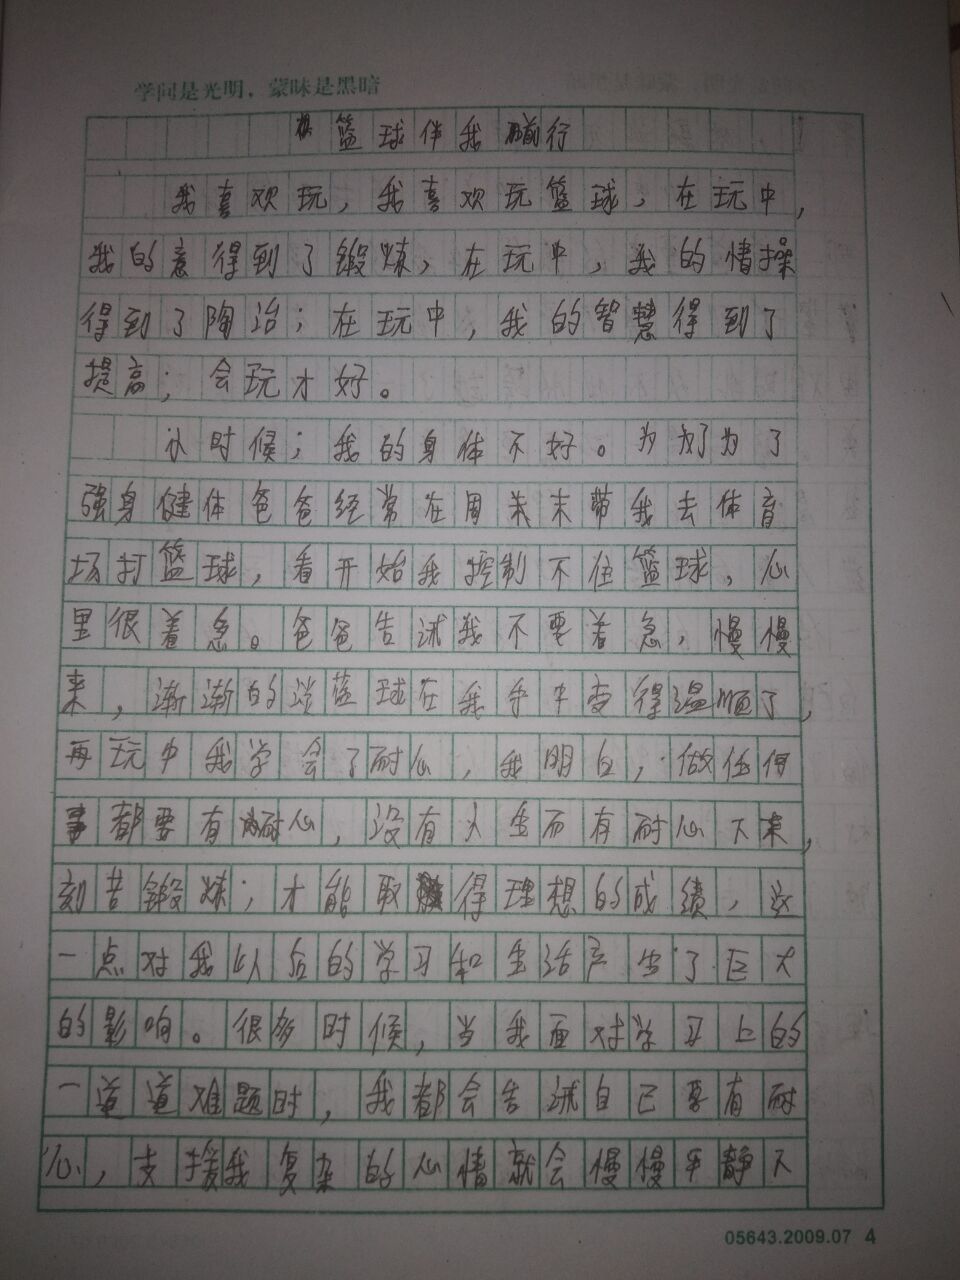 学问是光明，蒙昧是黑暗
篮球伴我前行
我喜欢玩，我喜欢玩篮球，在玩中，
我的意得到了锻炼，在玩中，我的情操
得到了陶冶；在玩中，我的智慧得到了
提高；会玩才好。
小时候；我的身体不好。为了为了
强身健体爸爸经常在周末末带我去体育
场打篮球，看开始我控制不住篮球，心
里很着急。爸爸告诉我不要着急，慢慢
来，渐渐的篮球在我手中变得温顺了，
再玩中我学会了耐心，我明白，做任何
事都要有耐心，没有人生而有耐心下来，
刻苦锻炼；才能取得理想的成绩，这
一点对我以后的学习和生活产生了巨大
的影响。很多时候，当我面对学习上的
一道道难题时，我都会告诉自己要有耐
心，支援我复杂的心情就会慢慢平静下
05643.2009.07 4